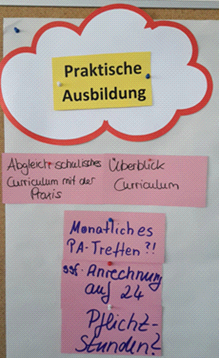 Praktische
Ausbildung
Abgleich schulisches
Curriculum mit der
Praxis
Überblick
Curriculum
Monatliches
PA-Treffen?!
ggf. Anrechnung
auf 24
Pflicht-
Stunden?